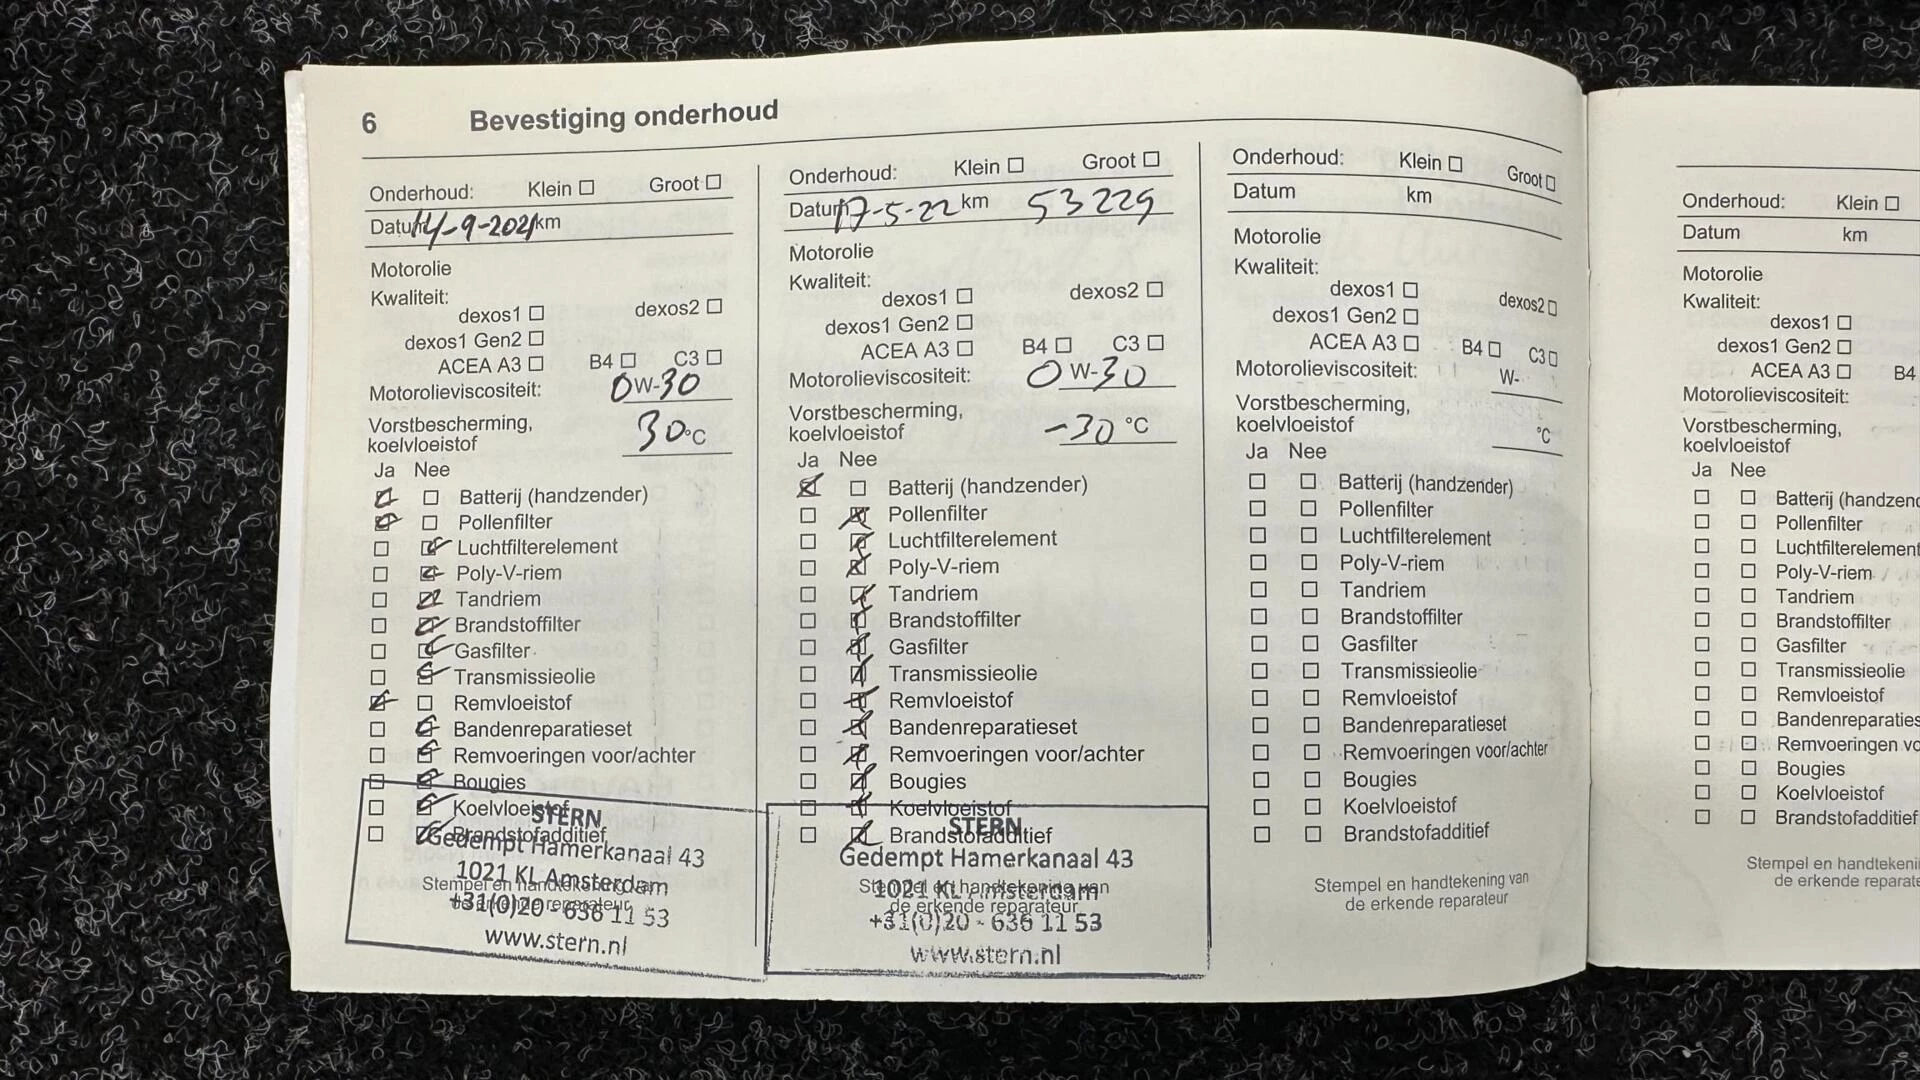 6 Bevestiging onderhoud
Onderhoud: Klein ☐ Groot ☐
Datum 14-9-2021 km
Motorolie
Kwaliteit:
dexos1 ☐ dexos2 ☐
dexos1 Gen2 ☐
ACEA A3 ☐ B4 ☐ C3 ☐
Motorolieviscositeit: 0W-30
Vorstbescherming,
koelvloeistof 30 °C
Ja Nee
☑ ☐ Batterij (handzender)
☑ ☐ Pollenfilter
☐ ☑ Luchtfilterelement
☐ ☑ Poly-V-riem
☐ ☑ Tandriem
☐ ☑ Brandstoffilter
☐ ☑ Gasfilter
☐ ☑ Transmissieolie
☑ ☐ Remvloeistof
☐ ☑ Bandenreparatieset
☐ ☑ Remvoeringen voor/achter
☐ ☑ Bougies
☐ ☑ Koelvloeistof
☐ ☑ Brandstofadditief
Stempel en handtekening van
de erkende reparateur
STERN
Gedempt Hamerkanaal 43
1021 KL Amsterdam
+31(0)20 - 636 11 53
www.stern.nl
Onderhoud: Klein ☐ Groot ☐
Datum 17-5-22 km 53229
Motorolie
Kwaliteit:
dexos1 ☐ dexos2 ☐
dexos1 Gen2 ☐
ACEA A3 ☐ B4 ☐ C3 ☐
Motorolieviscositeit: 0W-30
Vorstbescherming,
koelvloeistof -30 °C
Ja Nee
☒ ☐ Batterij (handzender)
☐ ☒ Pollenfilter
☐ ☒ Luchtfilterelement
☐ ☒ Poly-V-riem
☐ ☒ Tandriem
☐ ☒ Brandstoffilter
☐ ☒ Gasfilter
☐ ☒ Transmissieolie
☐ ☒ Remvloeistof
☐ ☒ Bandenreparatieset
☐ ☒ Remvoeringen voor/achter
☐ ☒ Bougies
☐ ☒ Koelvloeistof
☐ ☒ Brandstofadditief
Stempel en handtekening van
de erkende reparateur
STERN
Gedempt Hamerkanaal 43
1021 KL Amsterdam
+31(0)20 - 636 11 53
www.stern.nl
Onderhoud: Klein ☐ Groot ☐
Datum km
Motorolie
Kwaliteit:
dexos1 ☐ dexos2 ☐
dexos1 Gen2 ☐
ACEA A3 ☐ B4 ☐ C3 ☐
Motorolieviscositeit: W-
Vorstbescherming,
koelvloeistof °C
Ja Nee
☐ ☐ Batterij (handzender)
☐ ☐ Pollenfilter
☐ ☐ Luchtfilterelement
☐ ☐ Poly-V-riem
☐ ☐ Tandriem
☐ ☐ Brandstoffilter
☐ ☐ Gasfilter
☐ ☐ Transmissieolie
☐ ☐ Remvloeistof
☐ ☐ Bandenreparatieset
☐ ☐ Remvoeringen voor/achter
☐ ☐ Bougies
☐ ☐ Koelvloeistof
☐ ☐ Brandstofadditief
Stempel en handtekening van
de erkende reparateur
Onderhoud: Klein ☐
Datum km
Motorolie
Kwaliteit:
dexos1 ☐
dexos1 Gen2 ☐
ACEA A3 ☐ B4
Motorolieviscositeit:
Vorstbescherming,
koelvloeistof
Ja Nee
☐ ☐ Batterij (handzend
☐ ☐ Pollenfilter
☐ ☐ Luchtfilterelement
☐ ☐ Poly-V-riem
☐ ☐ Tandriem
☐ ☐ Brandstoffilter
☐ ☐ Gasfilter
☐ ☐ Transmissieolie
☐ ☐ Remvloeistof
☐ ☐ Bandenreparaties
☐ ☐ Remvoeringen vo
☐ ☐ Bougies
☐ ☐ Koelvloeistof
☐ ☐ Brandstofadditief
Stempel en handtekeni
de erkende reparate